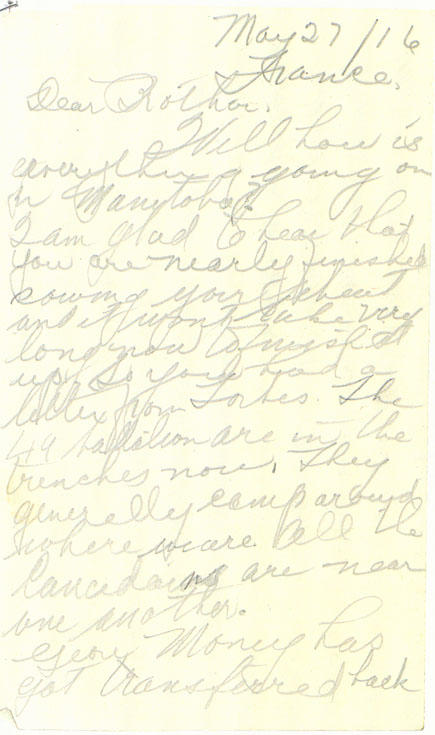 May 27/16
France.
Dear Brother.
Well how is
everything going on
in Manitoba?
I am glad to hear that
you are nearly finished
sowing your wheat
and it wont take very
long now to finish it
up. So you had a
letter from Forbes. The
49 battalion are in the
trenches now. They
generally camp around
where we are. All the
Canadains are near
one another.
Geor Money has
got transferred back